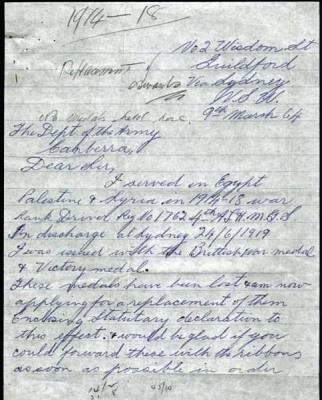 1914-18
No 2 Wisdom St
Guildford
Via Sydney
N.S.W.
9th March 64
The Dept of the Army
Canberra,
Dear Sir,
I served in Egypt
Palestine & Syria in 1914-18 war
rank Driver Reg No 1762 4th A.L.H.
On discharge at Sydney 24/6/1919
I was issued with the British war medal
& Victory medal.
These medals have been lost & am now
applying for a replacement of them
Enclosing Statutary declaration to
this effect. & would be glad if you
could forward these with the ribbons
as soon as possible in order